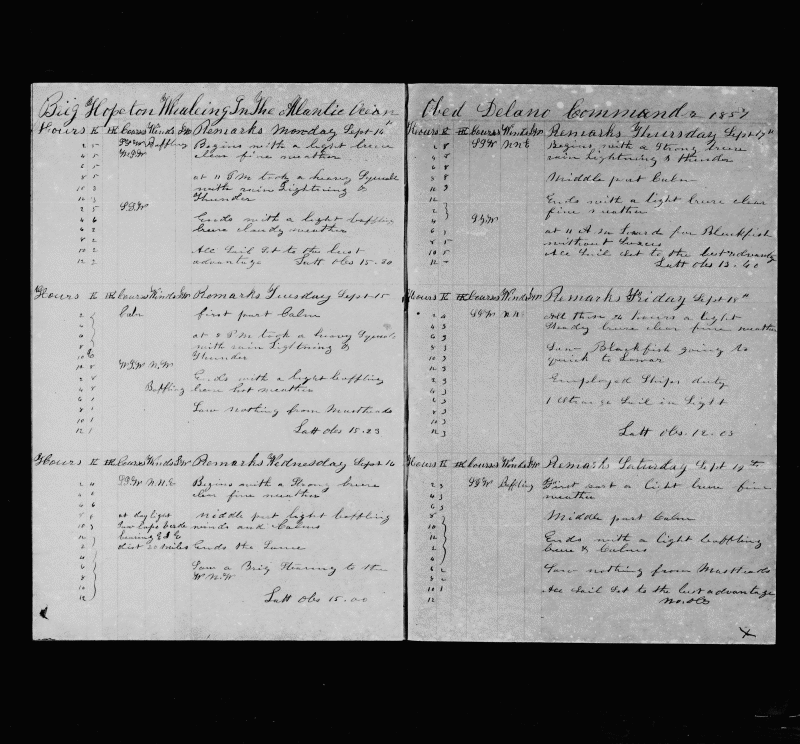 Brig Hopeton Whaleing In The Atlantic Ocean
Hours K HK Courses Winds Remarks Monday Sept 14th
Baffling Begins with a light breeze
clear fine weather
at 11 P M took a heavy Squall
with rain Lightning &
Thunder
Ends with a light baffling
breeze cloudy weather
All Sail Set to the best
advantage Latt Obs 15-30
Hours K HK Courses Winds Remarks Tuesday Sept 15
Calm first part Calm
at 8 P M took a heavy Squall
with rain Lightning &
Thunder
N.W
Ends with a light baffling
Baffling breeze hot weather
Saw nothing from Mastheads
Latt Obs 15-23
Hours K HK Courses Winds Remarks Wednesday Sept 16
N.N.E Begins with a Strong breeze
clear fine weather
at daylight Middle part light baffling
Saw Cape Verde winds and Calms
bearing
dist 20 miles Ends the Same
Saw a Brig Steering to the
W N.W
Latt Obs 15-00
Obed Delano Commander 1857
Hours K HK Courses Winds Remarks Thursday Sept 17th
N.N.E Begins with a Strong breeze
rain Lightning & thunder
Middle part Calm
Ends with a light breeze clear
fine weather
at 11 A M Lowrd for Blackfish
without Success
All Sail Set to the best advantage
Latt Obs 13-40
Hours K HK Courses Winds Remarks Friday Sept 18th
N.E All these 24 hours a light
Steady breeze clear fine weather
Saw Blackfish going to
quick to Lower
Employed Ships duty
1 Strange Sail in Sight
Latt Obs 12-03
Hours K HK Courses Winds Remarks Saturday Sept 19th
Baffling First part a light breeze fine
weather
Middle part Calm
Ends with a light baffling
breeze & Calms
Saw nothing from Mastheads
All Sail Set to the best advantage
No Obs
X